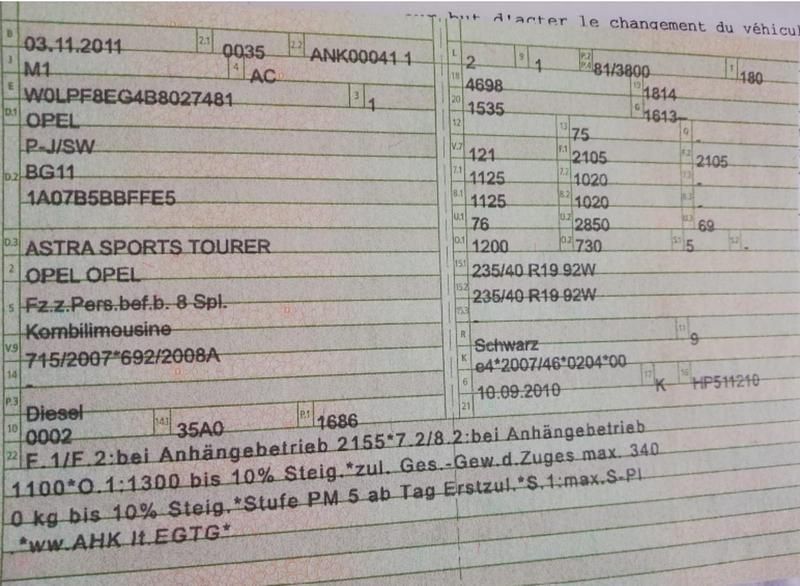 but d'acter le changement du véhicul
B 03.11.2011 2.1 0035 2.2 ANK00041 1
J M1 4 AC
E W0LPF8EG4B8027481 3 1
D.1 OPEL
P-J/SW
D.2 BG11
1A07B5BBFFE5
D.3 ASTRA SPORTS TOURER
2 OPEL OPEL
5 Fz.z.Pers.bef.b. 8 Spl.
Kombilimousine
V.9 715/2007*692/2008A
14 -
P.3 Diesel
10 0002 14.1 35A0 P.1 1686
L 2 9 1 P.2 P.4 81/3800 T 180
18 4698 19 1814
20 1535 G 1613-
12 13 75 Q -
V.7 121 F.1 2105 F.2 2105
7.1 1125 7.2 1020 7.3 -
8.1 1125 8.2 1020 8.3 -
U.1 76 U.2 2850 U.3 69
O.1 1200 O.2 730 S.1 5 S.2 -
15.1 235/40 R19 92W
15.2 235/40 R19 92W
15.3 -
R Schwarz 11 9
K e4*2007/46*0204*00
6 10.09.2010 17 K 16 HP511210
21
22 F.1/F.2:bei Anhängebetrieb 2155*7.2/8.2:bei Anhängebetrieb
1100*O.1:1300 bis 10% Steig.*zul. Ges.-Gew.d.Zuges max. 340
0 kg bis 10% Steig.*Stufe PM 5 ab Tag Erstzul.*S.1:max.S-Pl
.*ww.AHK lt.EGTG*